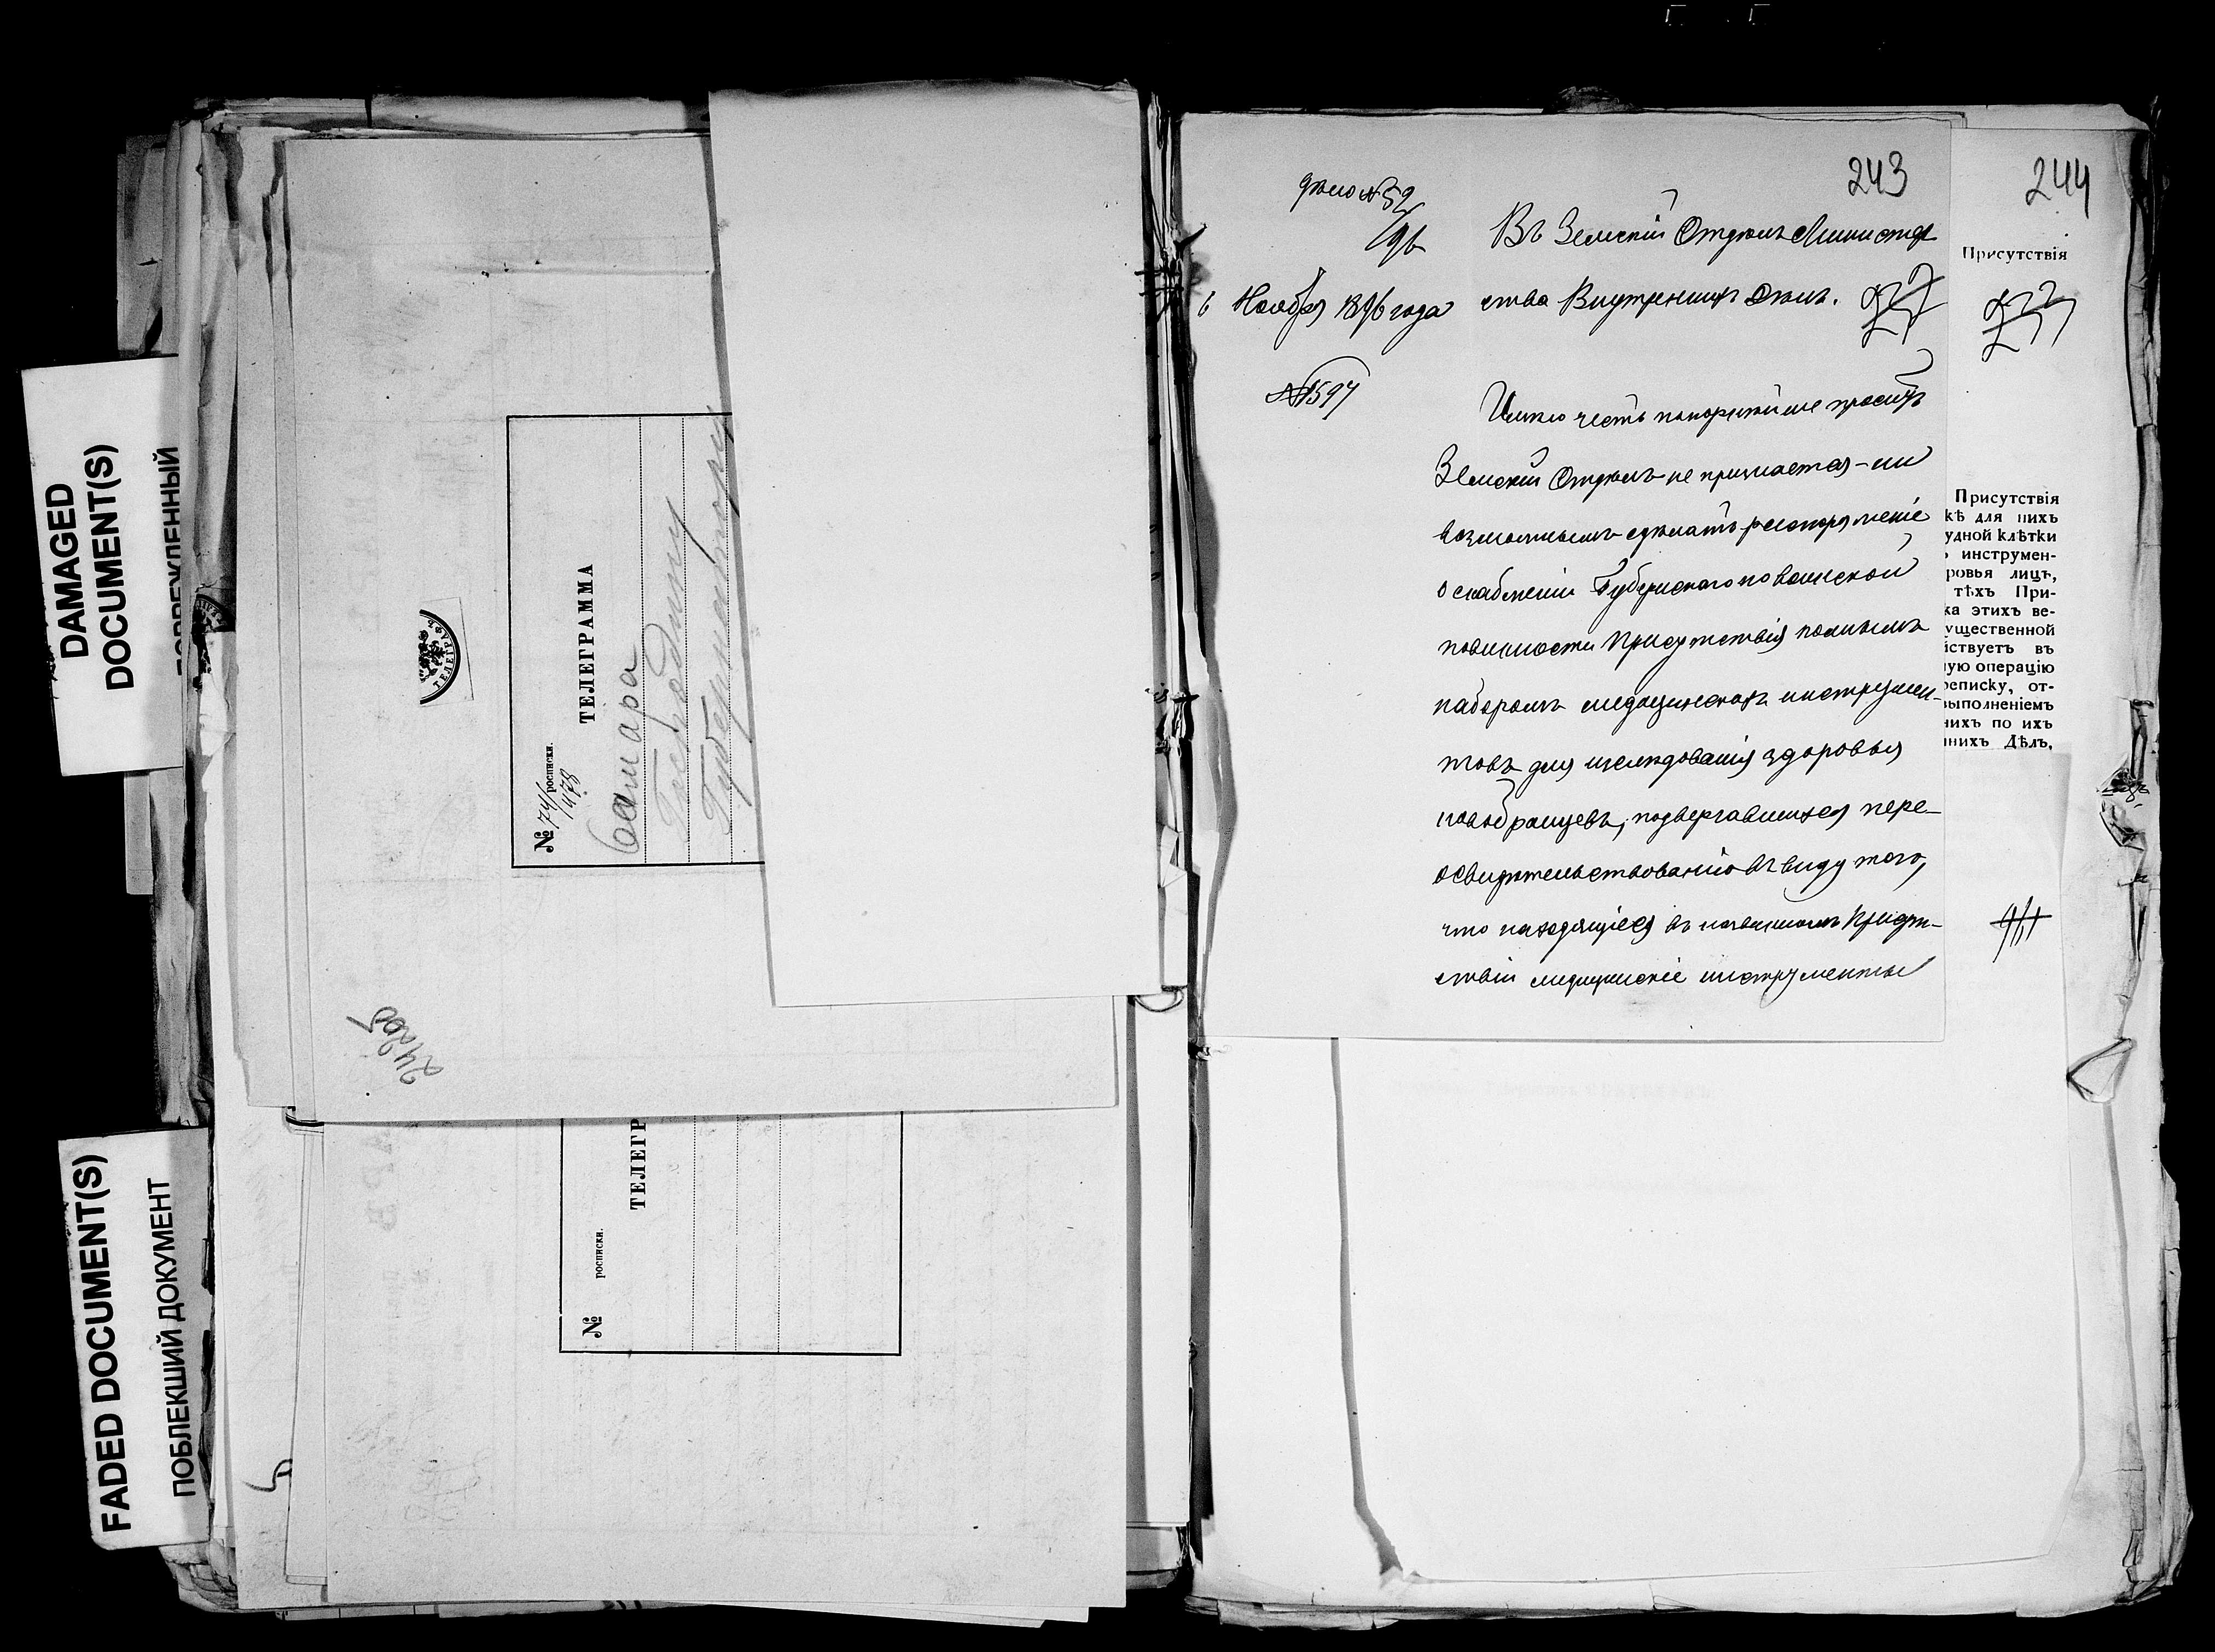 DAMAGED
DOCUMENT(S)
FADED DOCUMENT(S)
ПОБЛЕКШИЙ ДОКУМЕНТ
ТЕЛЕГРАФЪ
№ 74/478 росписки.
ТЕЛЕГРАММА
Самара
Господину
Губернатору
№ росписки.
ТЕЛЕГР
243
дѣло № 52/96
Въ Земскій Отдѣлъ Министер
6 Ноября 1896 года
ства Внутреннихъ Дѣлъ.
№ 1597
Имѣю честь покорнѣйше просить
Земскій Отдѣлъ не признается-ли
возможнымъ сдѣлать распоряженіе
о снабженіи Губернскаго по воинской
повинности Присутствія полнымъ
наборомъ медицинскихъ инструмен-
товъ для изслѣдованія здоровья
новобранцевъ, подвергавшихся пере-
освидѣтельствованію въ виду того,
что находящіеся въ названномъ Присут-
ствіи медицинскіе инструменты
244
Присутствія
Присутствія
кѣ для нихъ
удной клѣтки
инструмен-
ровья лицъ,
тѣхъ При-
ка этихъ ве-
ущественной
йствуетъ въ
ную операцію
реписку, от-
выполненіемъ
нихъ по ихъ
нихъ Дѣлъ,